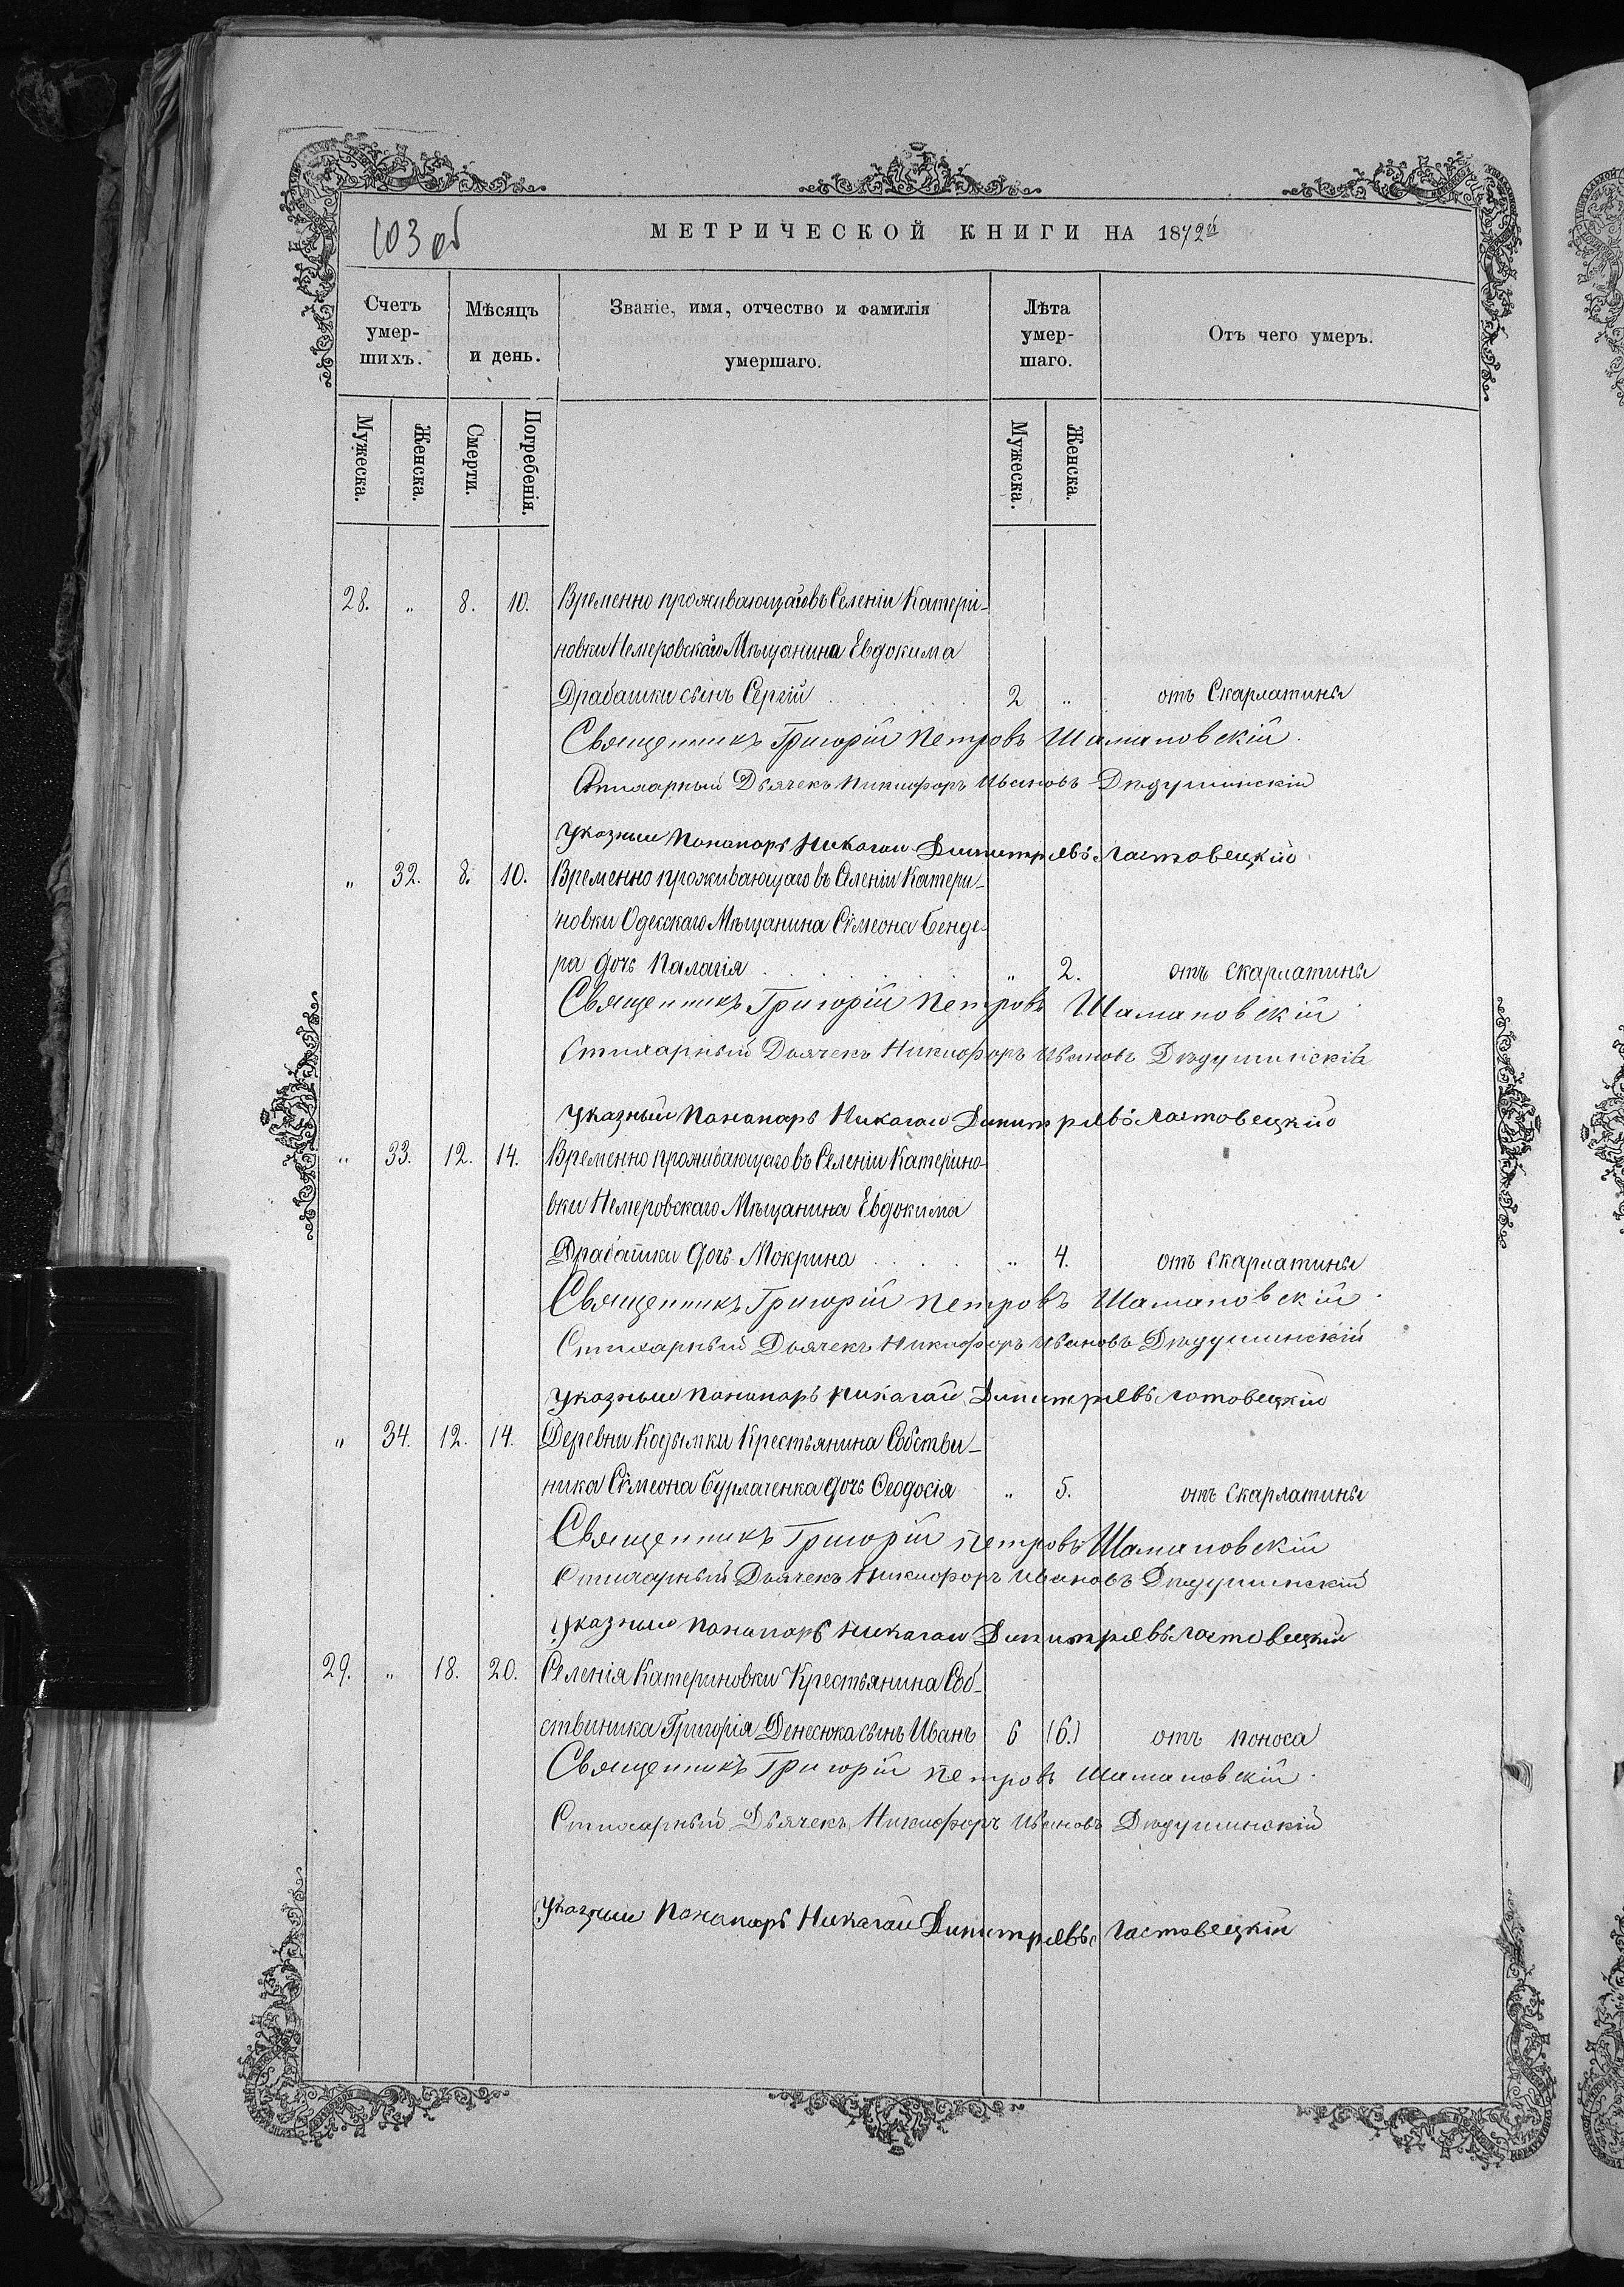 103 об
МЕТРИЧЕСКОЙ КНИГИ НА 1872й
Счетъ умер-шихъ.
Мѣсяцъ и день.
Званіе, имя, отчество и фамилія умершаго.
Лѣта умер-шаго.
Отъ чего умеръ.
Мужеска. Женска. Смерти. Погребенія. Мужеска. Женска.
28. „ 8. 10. Временно проживающаго въ Селеніи Катери-
новки Немеровскаго Мѣщанина Евдокима
Драбашки сынъ Сергій . . . . . 2 „ отъ Скарлатины
Священникъ Григорій Петровъ Шамановскій.
Стихарный Дьячекъ Никифоръ Ивановъ Дѣдушинскій
Указный Понамарь Николай Димитріевъ Ластовецкій
„ 32. 8. 10. Временно проживающаго въ Селеніи Катери-
новки Одесскаго Мѣщанина Сѵмеона Бенде-
ра дочь Палагія . . . . . „ 2. отъ скарлатины
Священникъ Григорій Петровъ Шамановскій
Стихарный Дьячекъ Никифоръ Ивановъ Дѣдушинскій
Указный Понамарь Николай Димитріевъ Ластовецкій
„ 33. 12. 14. Временно проживающаго въ Селеніи Катерино-
вки Немеровскаго Мѣщанина Евдокима
Драбашки дочь Мокрина . . . . „ 4. отъ скарлатины
Священникъ Григорій Петровъ Шамановскій.
Стихарный Дьячекъ Никифоръ Ивановъ Дѣдушинскій
Указный Понамарь Николай Димитріевъ Ластовецкій
„ 34. 12. 14. Деревни Кодымки Крестьянина Собстве-
ника Сѵмеона Бурлаченка дочь Ѳеодосія „ 5. отъ скарлатины
Священникъ Григорій Петровъ Шамановскій
Стихарный Дьячекъ Никифоръ Ивановъ Дѣдушинскій
Указный Понамарь Николай Димитріевъ Ластовецкій
29. „ 18. 20. Селенія Катериновки Крестьянина Соб-
ственика Григорія Денесюка сынъ Иванъ 6 (6.) отъ поноса
Священникъ Григорій Петровъ Шамановскій.
Стихарный Дьячекъ Никифоръ Ивановъ Дѣдушинскій
Указный Понамарь Николай Димитріевъ Ластовецкій